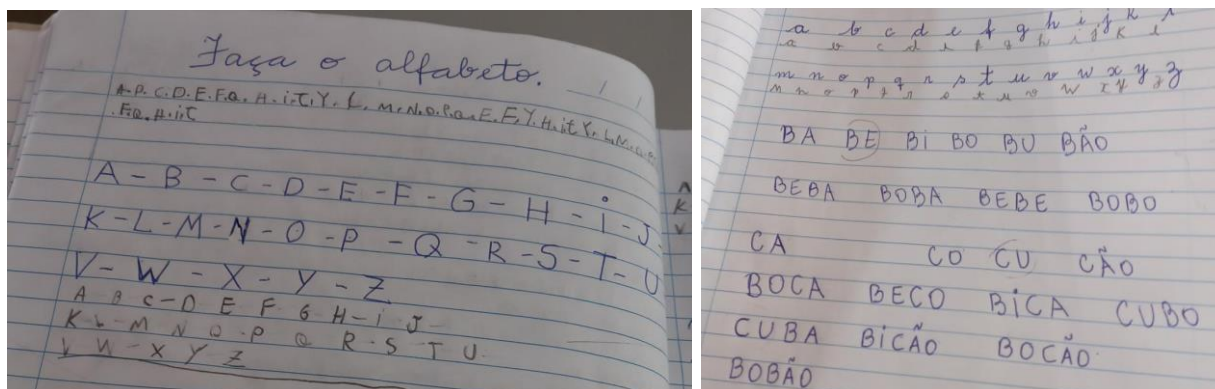 Faça o alfabeto.
A.P.C.D.E.F.Q.H.i.T.Y.L.M.N.O.P.Q.E.F.Y.H.it.Y.L.M.
.F.Q.H.i.T
A - B - C - D - E - F - G - H - i - J
K - L - M - N - O - P - Q - R - S - T - U
V - W - X - Y - Z
A B C - D E F G H - i J
K - L - M N O P Q R - S T U
V W - X Y Z
K
V
a b c d e f g h i j k l
a b c d e f g h i j k l
m n o p q r s t u v w x y z
m n o p q r s t u v w x y z
BA BE Bi BO BU BÃO
BEBA BOBA BEBE BOBO
CA CO CU CÃO
BOCA BECO BiCA CUBO
CUBA BiCÃO BOCÃO
BOBÃO